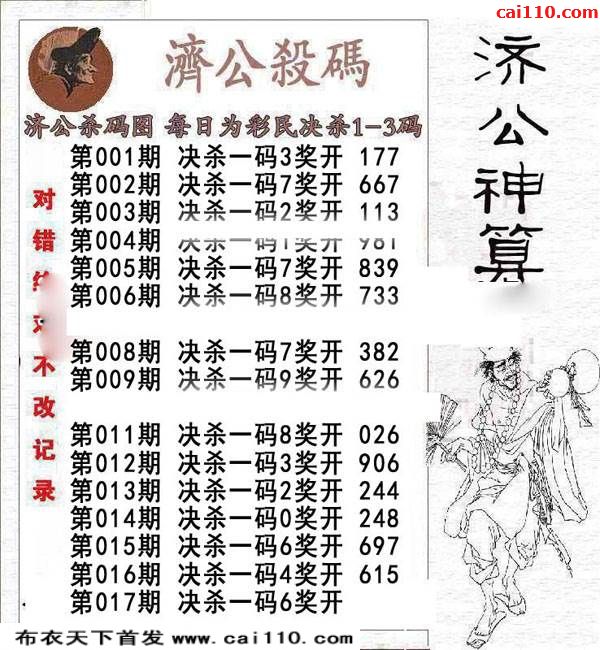 cai110.com
濟公殺碼
济公杀码图 每日为彩民决杀1-3码
第001期 决杀一码3奖开 177
第002期 决杀一码7奖开 667
第003期 决杀一码2奖开 113
第004期 决杀一码1奖开 981
第005期 决杀一码7奖开 839
第006期 决杀一码8奖开 733
第008期 决杀一码7奖开 382
第009期 决杀一码9奖开 626
第011期 决杀一码8奖开 026
第012期 决杀一码3奖开 906
第013期 决杀一码2奖开 244
第014期 决杀一码0奖开 248
第015期 决杀一码6奖开 697
第016期 决杀一码4奖开 615
第017期 决杀一码6奖开
对错
不改记录
济公神算
布衣天下首发 www.cai110.com